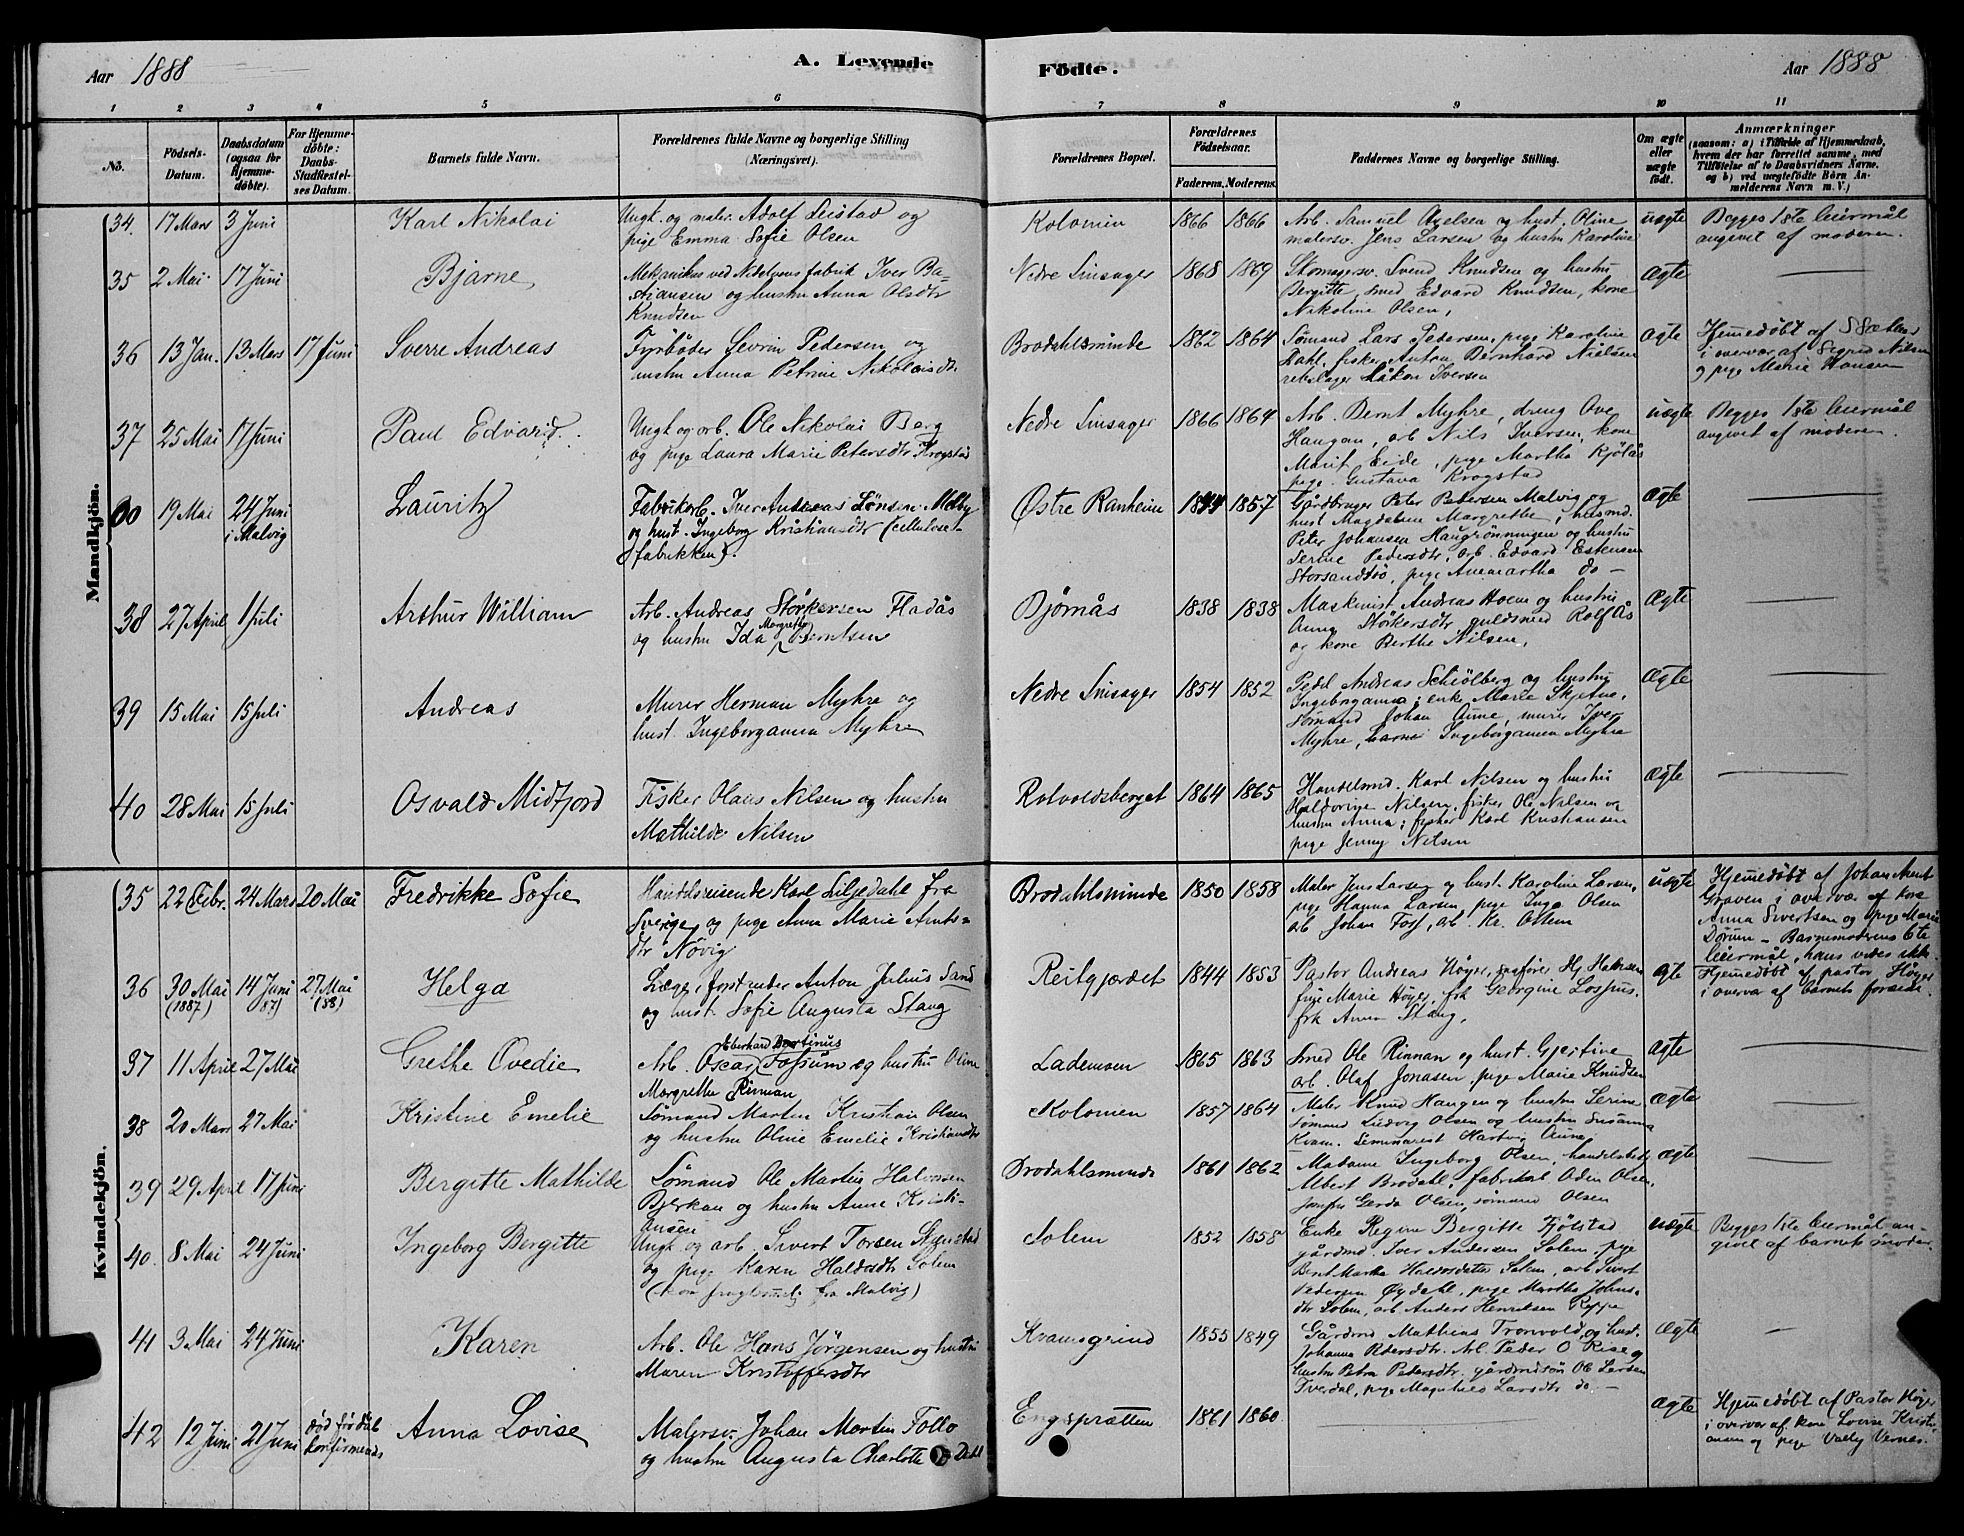 Aar 1888
A. Levende
Födte.
Aar 1888
1 2 3 4 5 6 7 8 9 10 11
No.
Födsels-Datum.
Daabsdatum (ogsaa for Hjemmedöbte).
For Hjemmedöbte: Daabs-Stadfæstelses Datum.
Barnets fulde Navn.
Forældrenes fulde Navne og borgerlige Stilling (Næringsvei).
Forældrenes Bopæl.
Forældrenes Födselsaar.
Faderens. Moderens.
Faddernes Navne og borgerlige Stilling.
Om ægte eller uægte födt.
Anmærkninger
(saasom: a) i Tilfælde af Hjemmedaab, hvem der har forrettet samme, med Tilföielse af to Daabsvidners Navne, og b) ved uægtefödte Börn Anmelderens Navn m. V.)
Mandkjön.
34. 17 Mars 3 Juni Karl Nikolai
Ungk. og maler Adolf Leistad og
pige Emma Sofie Olsen
Kolonien 1866 1866
Arb. Samuel Axelsen og hust. Oline
malersv. Jens Larsen og hustru Karoline
uægte
Begges 1ste leiermål
angivet af moderen.
35 2 Mai 17 Juni Bjarne
Mekanikus ved Nidelvens fabrik Iver Ba-
stiansen og hustru Anna Olsdtr
Knudsen
Nedre Linsager 1868 1869
Skomagersv. Svend Knudsen og hustru
Bergitte, smed Edvard Knudsen, kone
Nikoline Olsen,
ægte
36 13 Jan. 13 Mars 17 Juni Sverre Andreas
Fyrböder Sevrin Pedersen og
hustru Anna Petrine Nikolaisdtr
Brodahlsminde 1862 1864
Sömand Lars Pedersen, pige Karoline
Dahl, fisker Anton Bernhard Nielsen
rebslager Håkon Iversen
ægte
Hjemedöbt af
i overvær af Sigrid Nilsen
og pige Marie Hansen
37 25 Mai 17 Juni Paul Edvard
Ungk. og arb. Ole Nikolai Berg
og pige Laura Marie Petersdtr Krogstad
Nedre Linsager 1866 1864
Arb. Bernt Myhre, dreng Ove
Haugan, arb Nils Iversen, kone
Marit Eide, pige Martha Kjölås
pige Gustava Krogstad
uægte
Begges 1ste leiermål
angivet af moderen.
19 Mai 24 Juni i Malvig Lauritz
Fabrikarb. Iver Andreas Lönsen Melby
og hust. Ingeborg Kristiansdtr (cellulose-
fabrikken).
Östre Ranheim 1857
Gårdbruger Peter Petersen Malvig og
hust Magdalena Margrethe, husmd.
Peter Johansen Haugrönningen og hustru
Serine Pedersdtr, arb. Edvard Estensen
Storsandsö, pige Annemartha do –
ægte
38 27 April 1 Juli Arthur William
Arb. Andreas Störkersen Fladås
og hustru Ida Margrethe Berntsen
Björnås 1838 1838
Maskinist Andreas Hoem og hustru
Anna Störkersdtr guldsmed Rolf Ås
og kone Berthe Nilsen,
ægte
39 15 Mai 15 Juli Andreas
Murer Herman Myhre og
hust. Ingeborganna Myhre
Nedre Linsager 1854 1852
Pedel Andreas Schiölberg og hustru
Ingeborganna, enke Marie Skjetne,
Sömand Johan Aune, murer Iver
Myhre, Ingeborganna Myhre
ægte
40 28 Mai 15 Juli Osvald Midtfjord
Fisker Olaus Nilsen og hustru
Mathilde Nilsen
Rotvoldsberget 1864 1865
Handelsmd. Karl Nilsen og hustru
Haldorine Nilsen, fisker Ole Nilsen og
hustru Anna; fisker Karl Kristiansen
pige Jenny Nilsen
ægte
Kvindekjön.
35 22 Febr. 24 Mars 20 Mai Fredrikke Sofie
Handelsreisende Karl Liljedahl fra
Sverige og pige Anna Marie Arnts-
dtr Növig
Brodahlsminde 1850 1858
Maler Jens Larsen og hust. Karoline Larsen,
pige Hanna Larsen, pige Inga Olsen
arb Johan Foss, arb. Kr. Olsen
uægte
Hjemedöbt af Johan Arnt
Graven i overvær af kone
Anna Sivertsen og pige Marie
Dörum – Barnemoderens 6te
leiermål, hans vides ikke
36 30 Mai (1887) 14 Juni (87) 27 Mai (88) Helga
Læge i forstander Anton Julius Sand
og hust. Sofie Augusta Stang
Reitgjerdet 1844 1853
Pastor Andreas Höyer, sagförer Hj Halvorsen
frue Marie Höyer, frk Georgine Lossius,
frk Anna Stang,
ægte
Hjemedöbt af pastor Höyer
i overvær af barnets forældre.
37 11 April 27 Mai Grethe Ovedie
Arb. Oscar Eberhard Martinus Fossum og hustru Oline
Margrethe Rinnan
Lademoen 1865 1863
Smed Ole Rinnan og hust. Gjertine
arb. Olaf Jonasen, pige Marie Knudsen
ægte
38 20 Mars 27 Mai Kristine Emelie
Sömand Martin Kristian Olsen
og hustru Oline Emelie Kristiansdtr
Kolonien 1857 1864
Maler Knud Haugen og hustru Serine
sömand Ludvig Olsen og hustru Susanna
Kvam. Seminarist Hartvig Aune
ægte
39 29 April 17 Juni Bergitte Mathilde
Sömand Ole Martin Halvorsen
Bjerkan og hustru Anne Kristi-
ansen
Brodahlsminde 1861 1862
Madame Ingeborg Olsen, handelsbetj
Albert Brodahl, fabrikarb Odin Olsen,
jomfru Gerda Olsen, sömand Olsen
ægte
40. 8 Mai 24 Juni Ingeborg Bergitte
Ungk. og arb. Sivert Torsen Stgnstad
og pige Karen Haldosdtr Solem
Solem 1852 1858
Enke Regine Bergitte Fjölstad
gårdmd Iver Andersen Solem, pige
Berit Martha Haldosdatter Solem, arb Sivert
Pedersen Öydahl, pige Martha Johns-
dtr Solem, arb Anders Henriksen Reppe
uægte
Begges 1ste leiermål an-
givet af barnets moder.
41 3 Mai 24 Juni Karen
Arb. Ole Hans Jörgensen og hustru
Maren Kristoffersdtr
Kvamsgrind 1855 1849
Gårdmd Mathias Tronvold, og hust.
Johanna Pedersdtr. Arb. Peder O Rise og
hustru Petra Petersdtr. gårdmdssön Ole Larsen
Tverdal, pige Larsdtr do –
ægte
42 12 Juni 21 Juni död för dåb konfirmeredes Anna Lovise
Malersv. Johan Morten Follo
og hustru Augusta Charlotte Dahl
Engsprætten 1861 1860
ægte
Hjemedöbt af Pastor Höyer
i overvær af kone Lovise Kristi-
ansen og pige Valley Vernes.